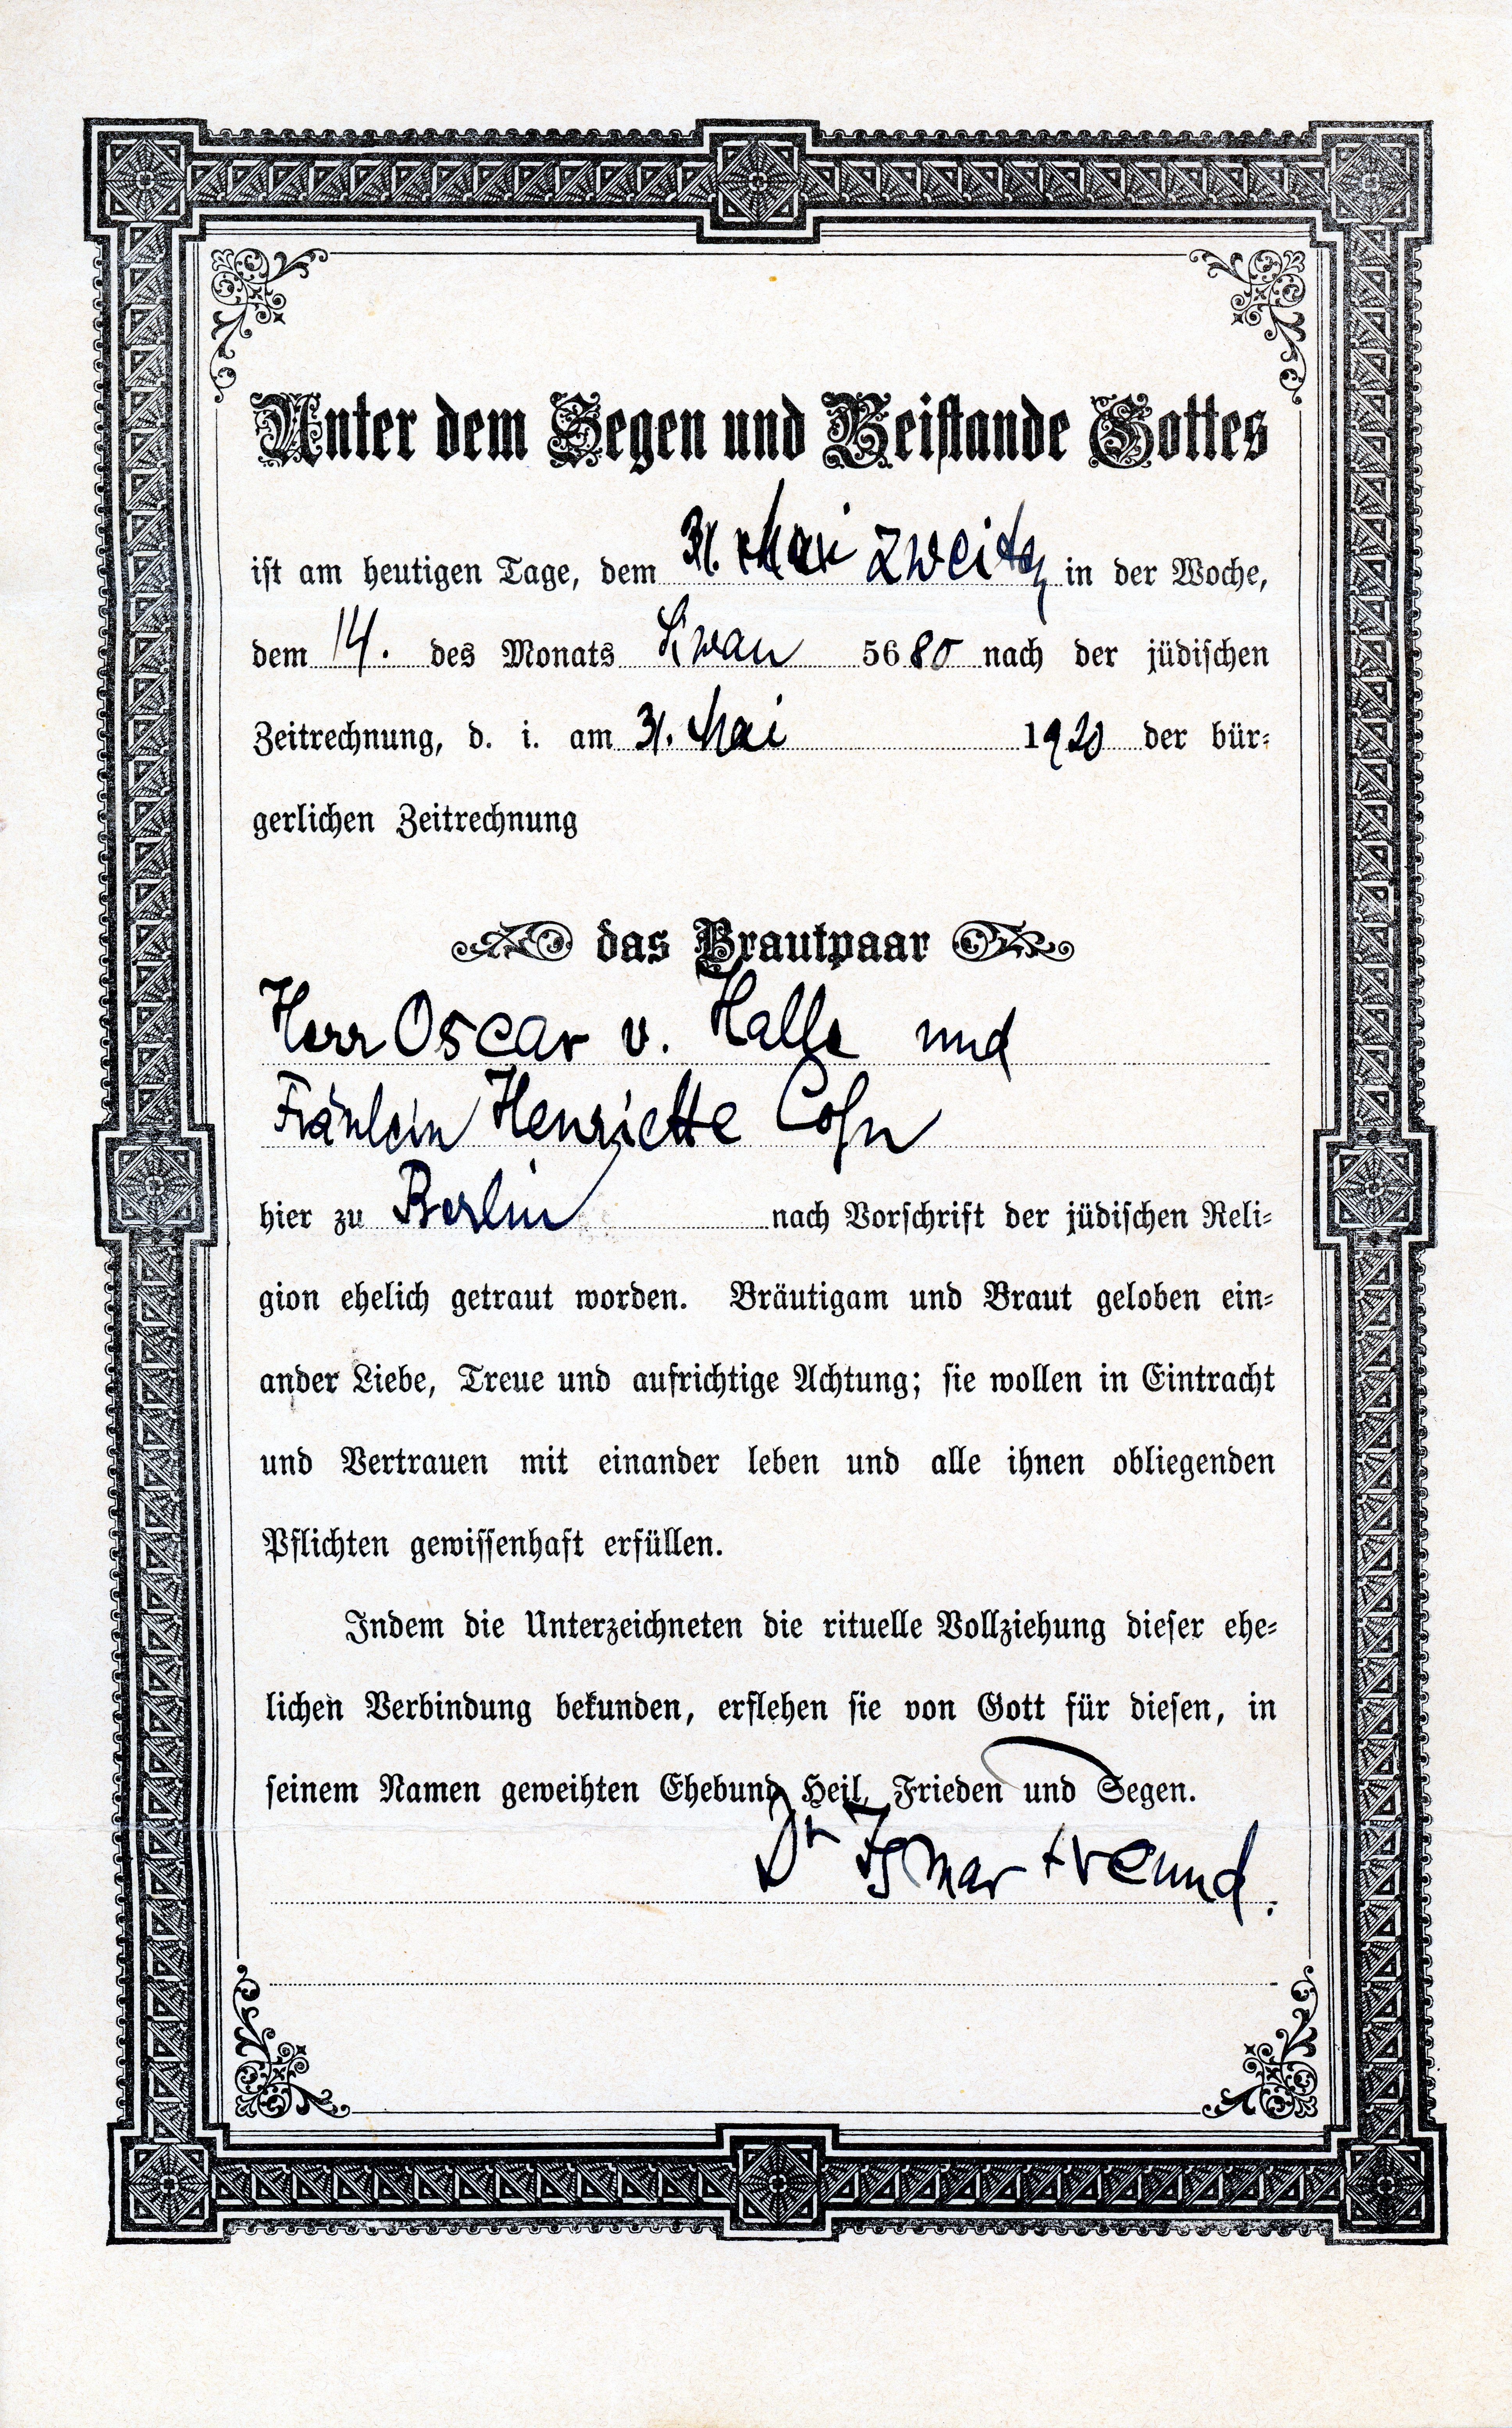 Unter dem Segen und Beistande Gottes
ist am heutigen Tage, dem 31. Mai zweiten in der Woche,
dem 14. des Monats Siwan 5680 nach der jüdischen
Zeitrechnung, d. i. am 31. Mai 1920 der bür-
gerlichen Zeitrechnung
das Brautpaar
Herr Oscar v. Halle und
Fräulein Henriette Cohn
hier zu Berlin nach Vorschrift der jüdischen Reli-
gion ehelich getraut worden. Bräutigam und Braut geloben ein-
ander Liebe, Treue und aufrichtige Achtung; sie wollen in Eintracht
und Vertrauen mit einander leben und alle ihnen obliegenden
Pflichten gewissenhaft erfüllen.
Indem die Unterzeichneten die rituelle Vollziehung dieser ehe-
lichen Verbindung bekunden, erflehen sie von Gott für diesen, in
seinem Namen geweihten Ehebund Heil, Frieden und Segen.
Dr Ismar Freund.